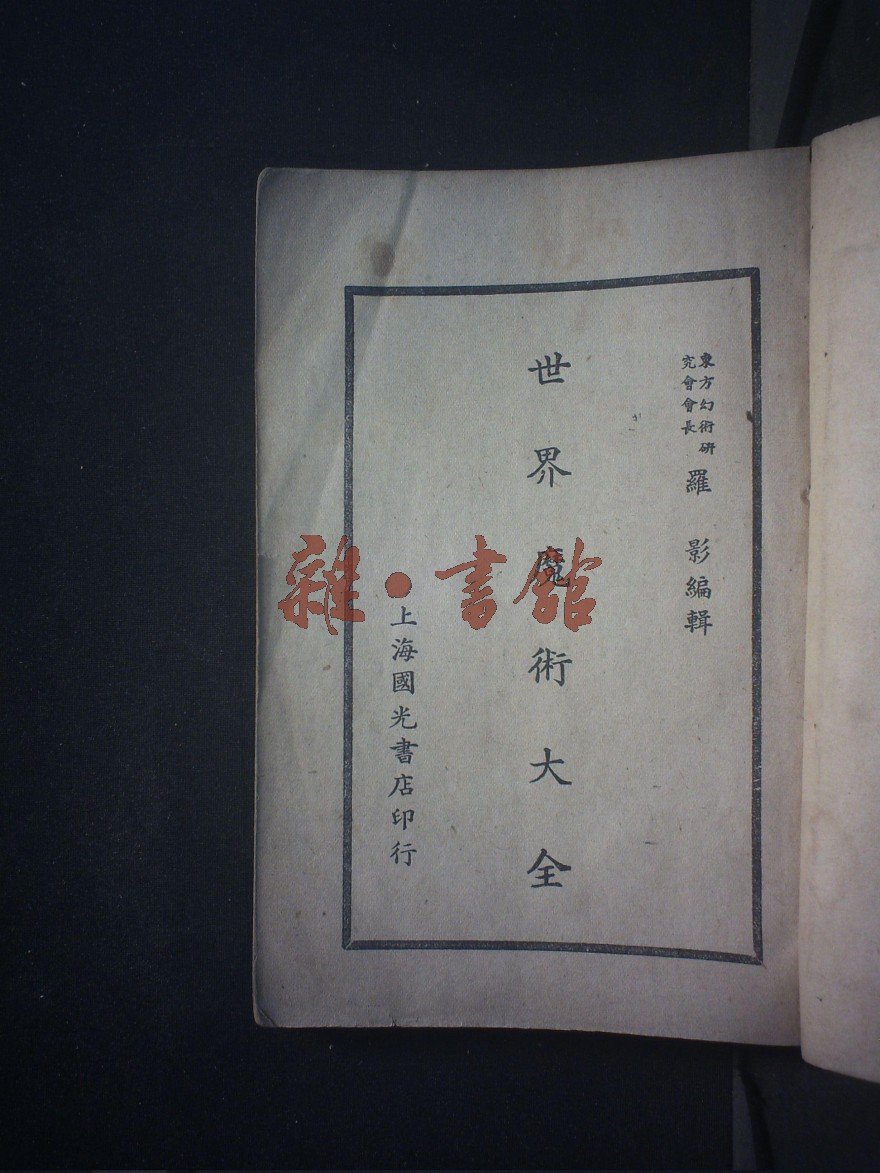 東方幻術研
究會會長
羅影編輯
世界魔術大全
上海國光書店印行
雜·書館